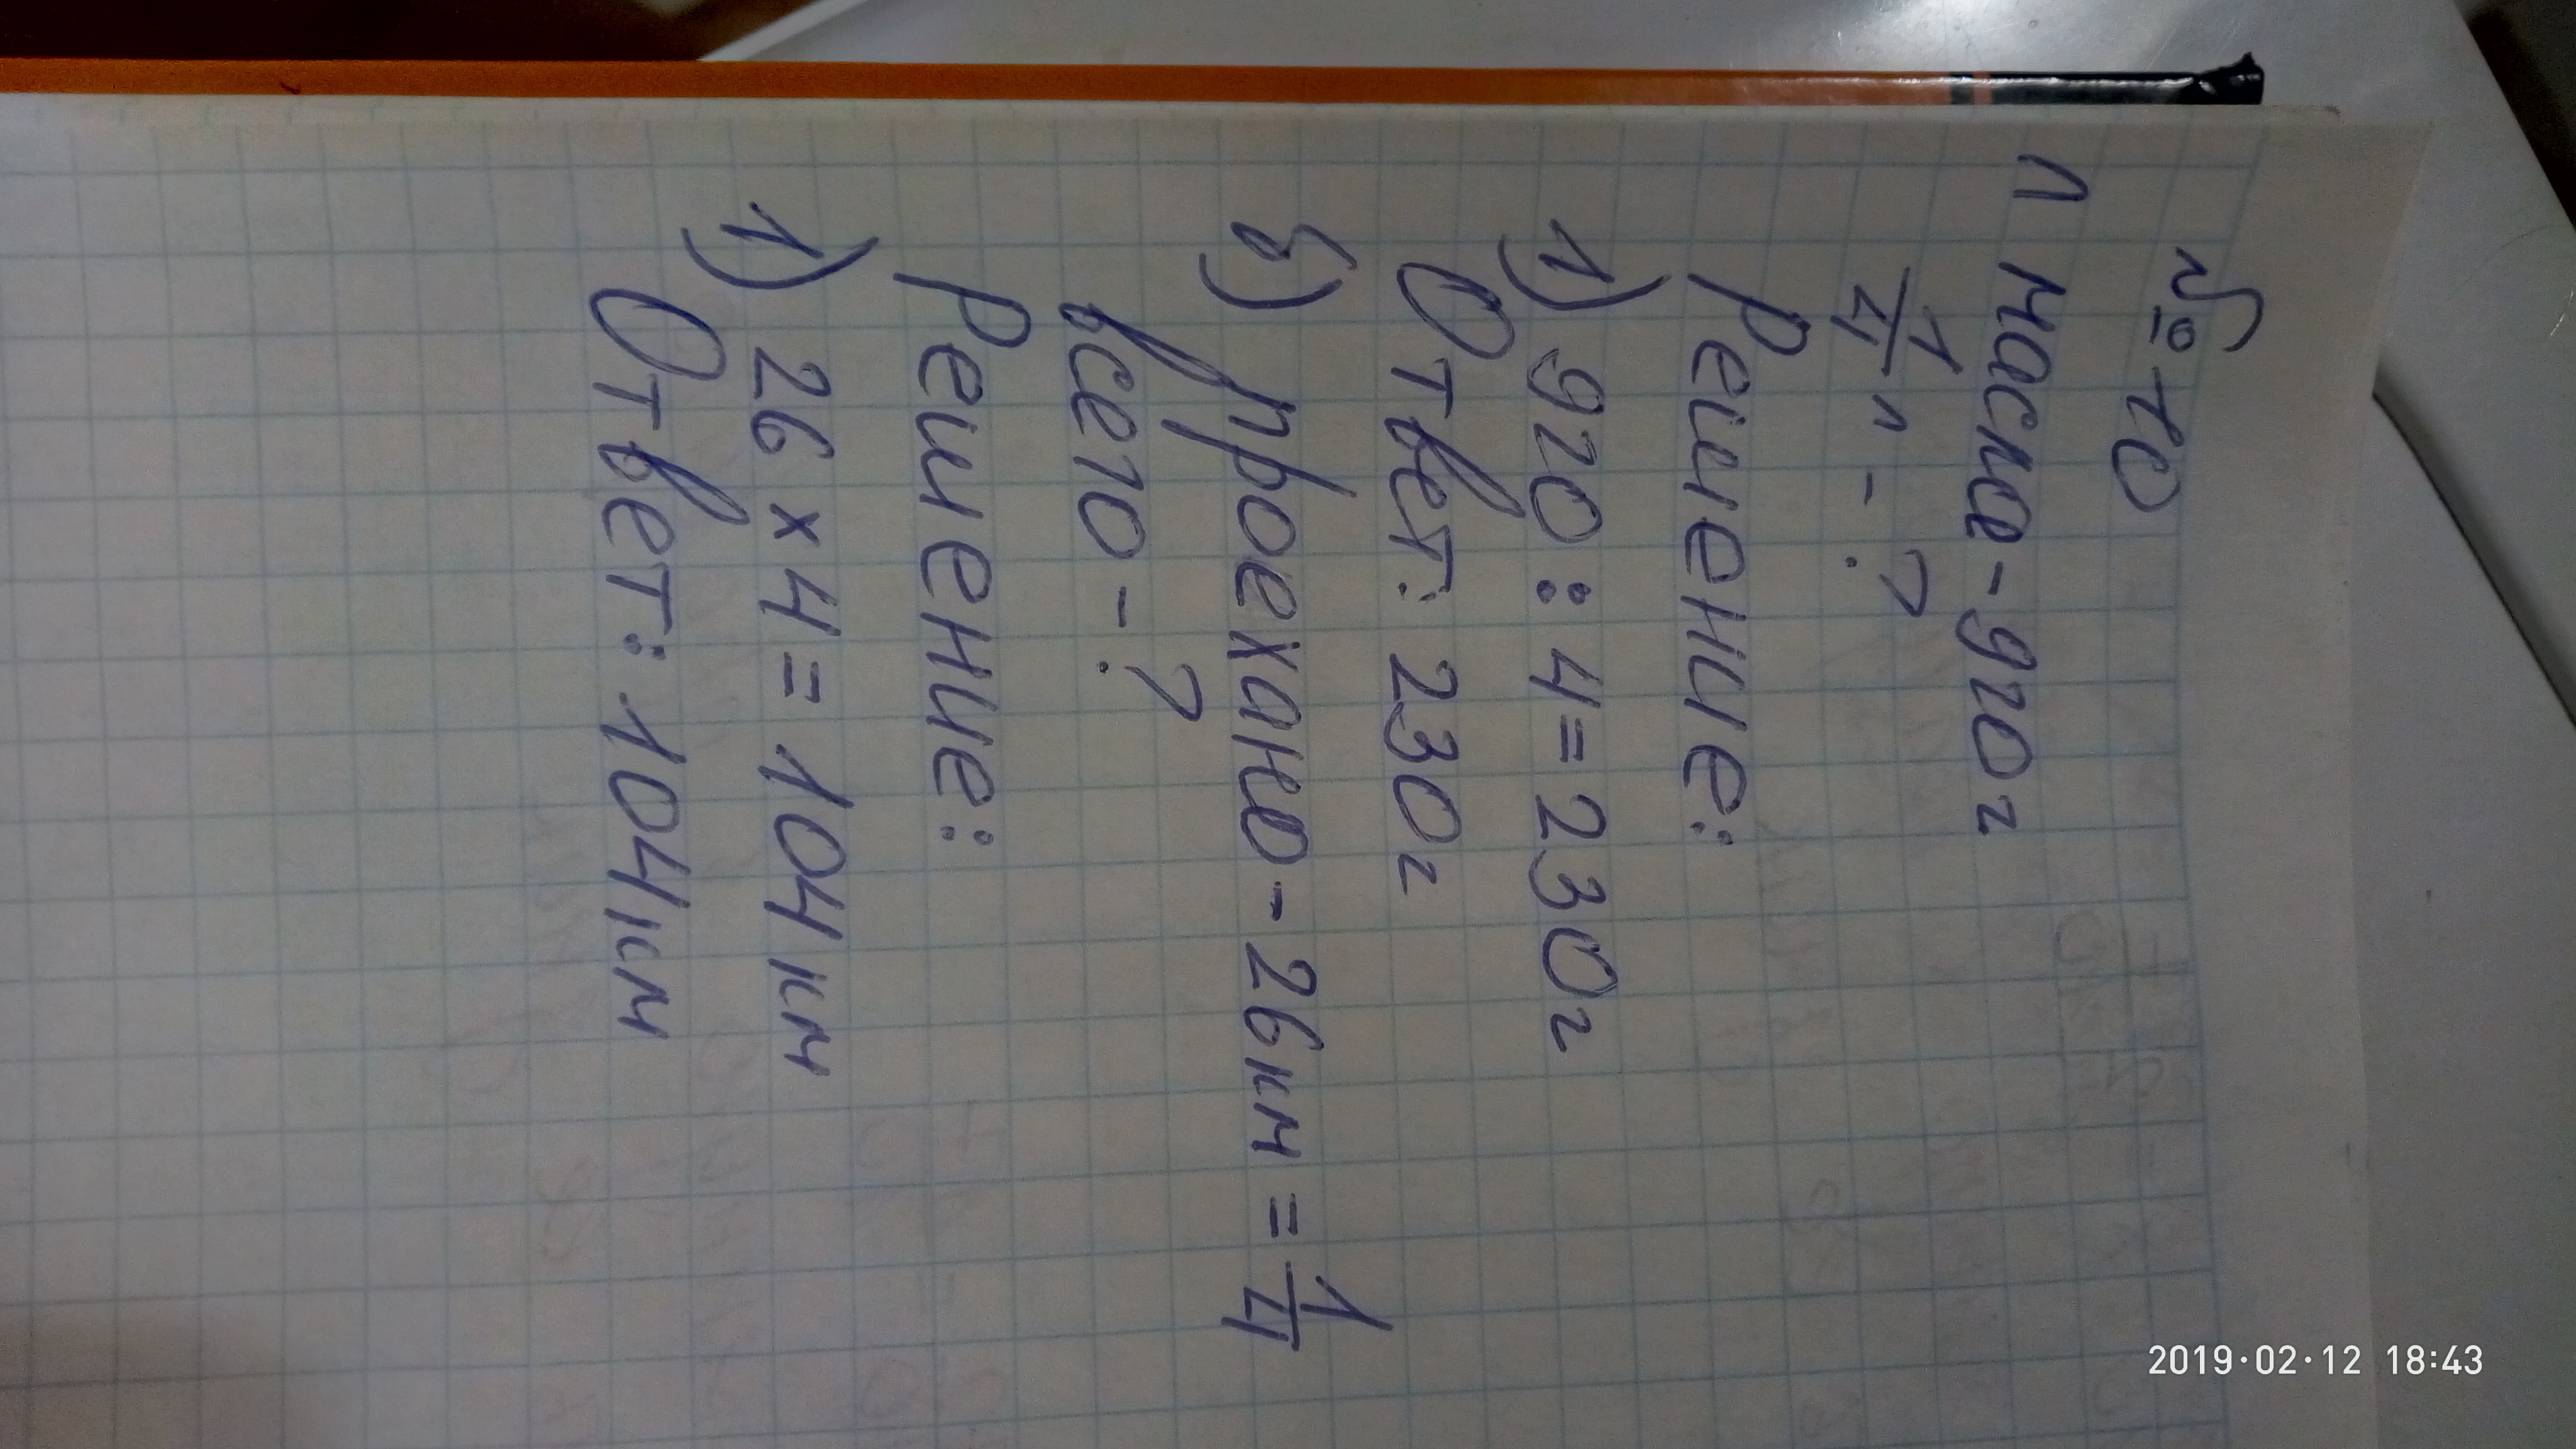 № 10
1 л масла - 920 г
1/4 л - ?
Решение:
1) 920 : 4 = 230 г
Ответ: 230 г
б) проехано - 26 км = 1/4
всего - ?
Решение:
1) 26 x 4 = 104 км
Ответ: 104 км
2019·02·12 18:43